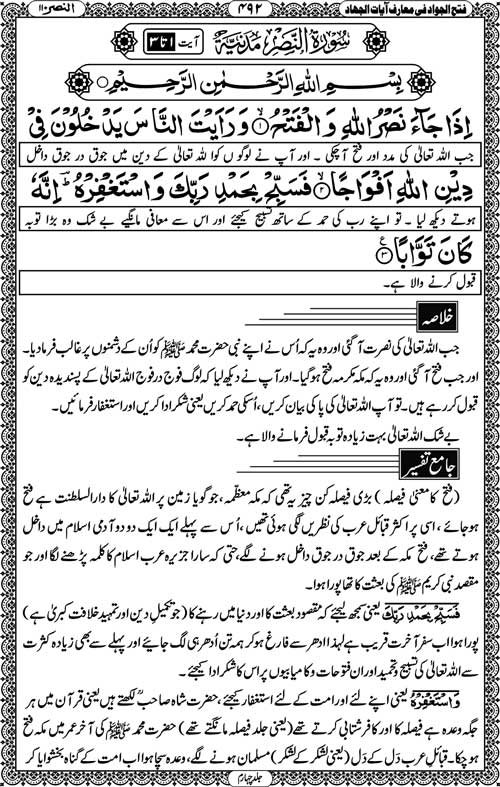 فتح الجواد فی معارف آیات الجھاد ۴۹۲ النصر ۱۱۰
سُوْرَۃُ النَّصْرِ مَدَنِیَّۃٌ آیت ۱ تا ۳
بِسْمِ اللہِ الرَّحْمٰنِ الرَّحِیْمِ
اِذَا جَآءَ نَصْرُ اللہِ وَ الْفَتْحُ ۝۱ وَ رَاَیْتَ النَّاسَ یَدْخُلُوْنَ فِیْ
جب اللہ تعالیٰ کی مدد اور فتح آچکی ۔ اور آپ نے لوگوں کو اللہ تعالیٰ کے دین میں جوق در جوق داخل
دِیْنِ اللہِ اَفْوَاجًا ۝۲ فَسَبِّحْ بِحَمْدِ رَبِّکَ وَ اسْتَغْفِرْہُ ؕ اِنَّہٗ
ہوتے دیکھ لیا ۔ تو اپنے رب کی حمد کے ساتھ تسبیح کیجئے اور اس سے معافی مانگیے بے شک وہ بڑا توبہ
کَانَ تَوَّابًا ۝۳
قبول کرنے والا ہے۔
خلاصہ
جب اللہ تعالیٰ کی نصرت آگئی اور وہ یہ کہ اُس نے اپنے نبی حضرت محمد ﷺ کو اُن کے دشمنوں پر غالب فرما دیا۔
اور جب فتح آگئی اور وہ یہ کہ مکہ مکرمہ فتح ہوگیا۔ اور آپ نے دیکھ لیا کہ لوگ فوج در فوج اللہ تعالیٰ کے پسندیدہ دین کو
قبول کر رہے ہیں۔ تو آپ اللہ تعالیٰ کی پاکی بیان کریں، اُسکی حمد کریں یعنی شکر ادا کریں اور استغفار فرمائیں۔
بے شک اللہ تعالیٰ بہت زیادہ توبہ قبول فرمانے والا ہے۔
جامع تفسیر
(فتح کا معنیٰ فیصلہ) بڑی فیصلہ کن چیز یہ تھی کہ مکہ معظّمہ، جو گویا زمین پر اللہ تعالیٰ کا دارالسلطنت ہے فتح
ہوجائے ، اسی پر اکثر قبائل عرب کی نظریں لگی ہوئی تھیں، اُس سے پہلے ایک ایک دو دو آدمی اسلام میں داخل
ہوتے تھے، فتح مکہ کے بعد جوق در جوق داخل ہونے لگے، حتی کہ سارا جزیرہ عرب اسلام کا کلمہ پڑھنے لگا اور جو
مقصد نبی کریم ﷺ کی بعثت کا تھا پورا ہوا۔
فَسَبِّحْ بِحَمْدِ رَبِّکَ یعنی سمجھ لیجئے کہ مقصود بعثت کا اور دنیا میں رہنے کا (جو تکمیل دین اور تمہید خلافت کبریٰ ہے)
پورا ہوا اب سفر آخرت قریب ہے لہٰذا ادھر سے فارغ ہو کر ہمہ تن اُدھر ہی لگ جائیے اور پہلے سے بھی زیادہ کثرت
سے اللہ تعالیٰ کی تسبیح و تحمید اور ان فتوحات و کامیابیوں پر اس کا شکر ادا کیجئے۔
وَاسْتَغْفِرْہُ یعنی اپنے لئے اور امت کے لئے استغفار کیجئے ، حضرت شاہ صاحبؒ لکھتے ہیں یعنی قرآن میں ہر
جگہ وعدہ ہے فیصلہ کا اور کافر شتابی کرتے تھے (یعنی جلد فیصلہ مانگتے تھے) حضرت محمد ﷺ کی آخر عمر میں مکہ فتح
ہوچکا۔ قبائل عرب دَل کے دَل (یعنی لشکر کے لشکر) مسلمان ہونے لگے، وعدہ سچا ہوا اب امت کے گناہ بخشوایا کر
جلد چہارم